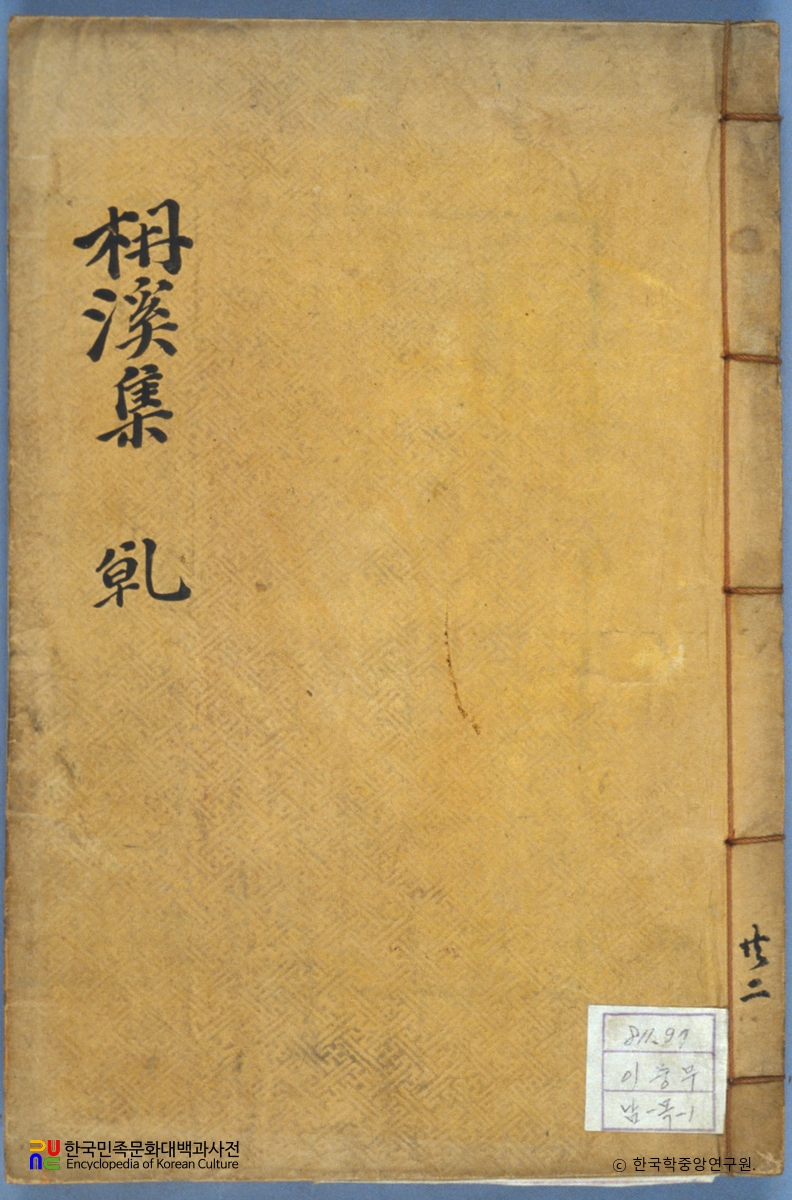 枏溪集 乹
共二
이충무
한국민족문화대백과사전
Encyclopedia of Korean Culture
© 한국학중앙연구원